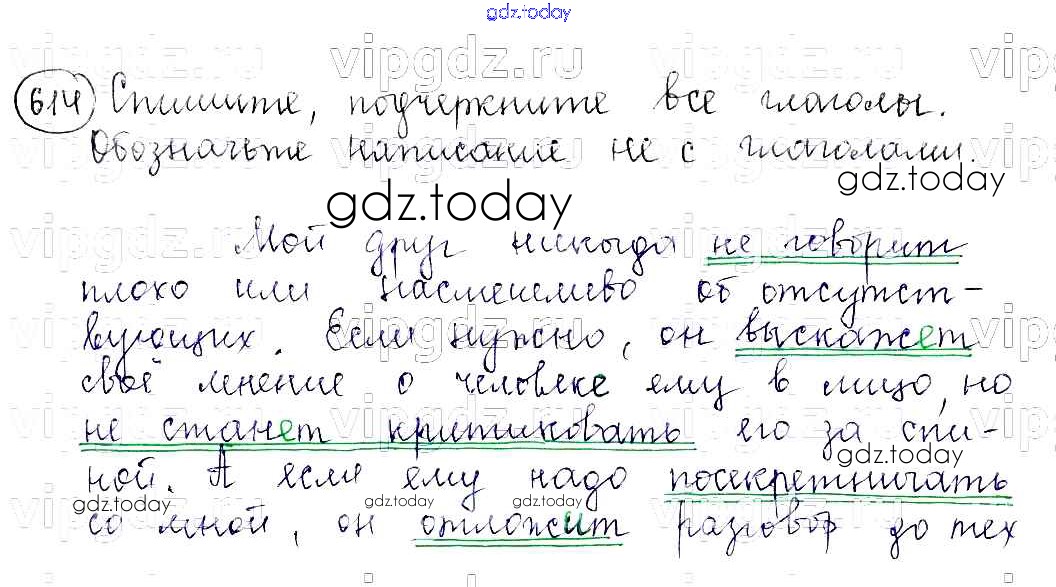 gdz.today
vipgdz.ru vipgdz.ru vipgdz.ru
614 Спишите, подчеркните все глаголы.
Обозначьте написание не с глаголами.
gdz.today
gdz.today
Мой друг никогда не говорит
плохо или насмешливо об отсутст-
вующих. Если нужно, он выскажет
своё мнение о человеке ему в лицо, но
не станет критиковать его за спи-
gdz.today
ной. А если ему надо посекретничать
gdz.today gdz.today gdz.today gdz.today
со мной, он отложит разговор до тех